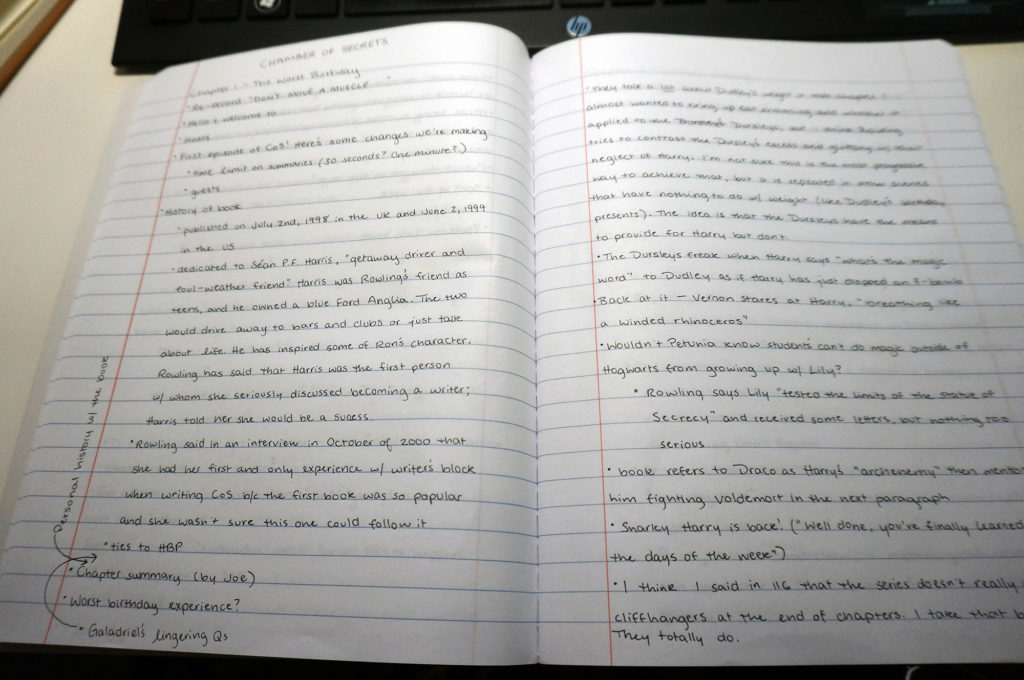 hp
CHAMBER OF SECRETS
Chapter 1 - "The Worst Birthday"
• Re-record "DON'T MOVE A MUSCLE..."
• Hello & welcome to...
• Hosts
• First episode of CoS! Here's some changes we're making
• time limit on summaries (30 seconds? One minute?)
• guests
• History of book
• published on July 2nd, 1998 in the UK and June 2, 1999
in the US
• dedicated to Séan P.F. Harris, "getaway driver and
foul-weather friend." Harris was Rowling's friend as
teens, and he owned a blue Ford Anglia. The two
would drive away to bars and clubs or just talk
about life. He has inspired some of Ron's character.
Rowling has said that Harris was the first person
w/ whom she seriously discussed becoming a writer;
Harris told her she would be a sucess.
• Rowling said in an interview in October of 2000 that
she had her first and only experience w/ writer's block
when writing CoS b/c the first book was so popular
and she wasn't sure this one could follow it
• ties to HBP
Personal history w/ the book
• Chapter summary (by Joe)
• Worst birthday experience?
• Galadriel's lingering Qs
• They talk a lot about Dudley's weight in this chapter. I
almost wanted to bring up fat shaming and
applied to the Dursleys, but I think Rowling
tries to contrast the Dursley's excess and gluttony w/ their
neglect of Harry. I'm not sure this is the most progressive
way to achieve that, but it is repeated in other scenes
that have nothing to do w/ weight (like Dudley's birthday
presents). The idea is that the Dursleys have the means
to provide for Harry but don't.
• The Dursleys freak when Harry says "what's the magic
word" to Dudley as if Harry has just dropped an f-bomb
• Back at it - Vernon stares at Harry, "breathing like
a winded rhinoceros"
• Wouldn't Petunia know students can't do magic outside of
Hogwarts from growing up w/ Lily?
• Rowling says Lily "tested the limits of the Statue of
Secrecy" and received some letters, but nothing too
serious
• book refers to Draco as Harry's "archenemy" then mentio
him fighting Voldemort in the next paragraph
• Snarley Harry is back! ("Well done, you've finally learned
the days of the week")
• I think I said in 116 that the series doesn't really
cliffhangers at the end of chapters. I take that b
They totally do.